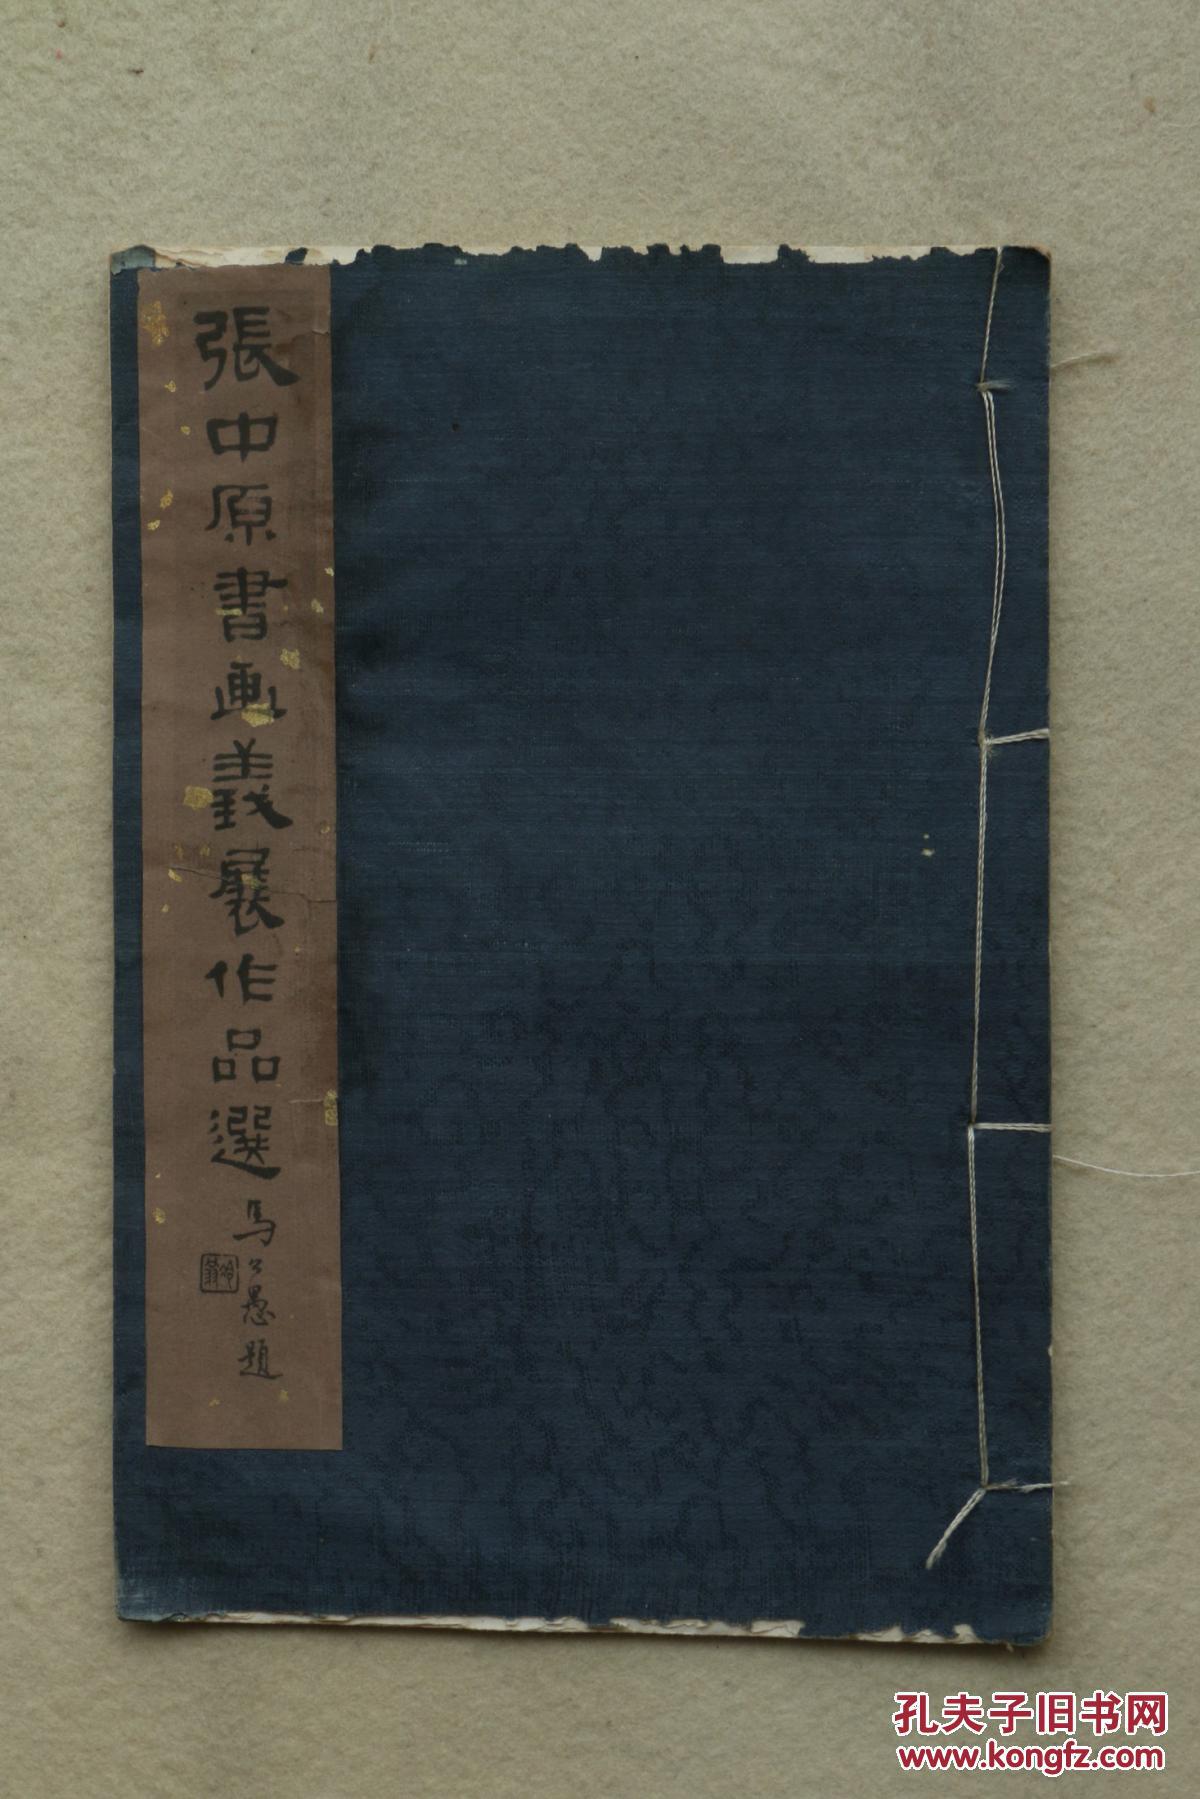 張中原書画義展作品選
馬公愚題
孔夫子旧书网
www.kongfz.com